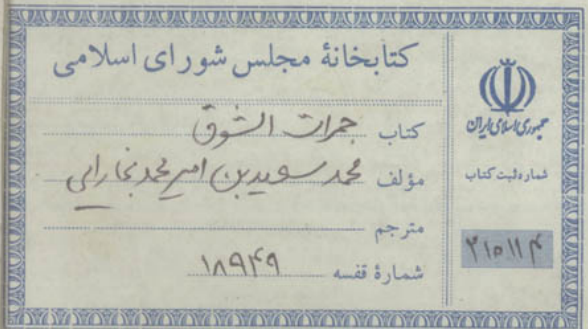 کتابخانهٔ مجلس شورای اسلامی
کتاب جمرات الشوق
مؤلف محمد سعید بن امیر محمد بخارایی
مترجم
شمارهٔ قفسه ۱۸۹۴۹
جمهوری اسلامی ایران
شماره ثبت کتاب
۲۱۵۱۱۴